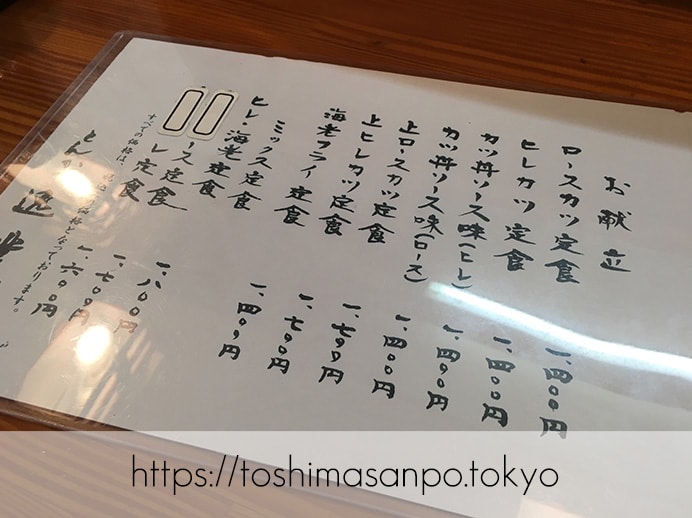 お献立
ロースカツ定食 一、四〇〇円
ヒレカツ定食 一、四〇〇円
カツ丼ソース味(ヒレ) 一、四〇〇円
カツ丼ソース味(ロース) 一、四〇〇円
上ロースカツ定食 一、七〇〇円
上ヒレカツ定食 一、七〇〇円
海老フライ定食 一、四〇〇円
ミックス定食 一、八〇〇円
ヒレ海老定食 一、七〇〇円
ース定食 一、六〇〇円
レ定食
すべての価格は、価格となっております。
https://toshimasanpo.tokyo